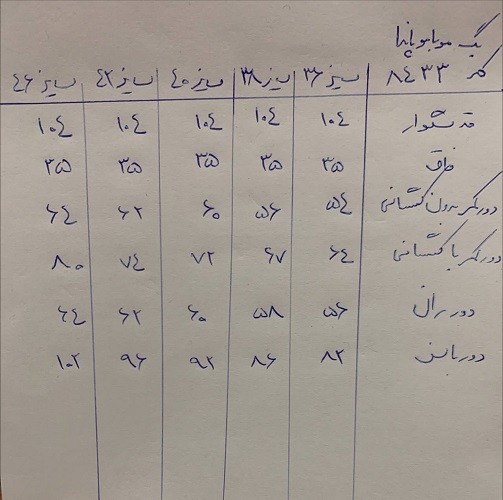 بگ موبایو پاندا
کد ۸۴۳۳ سایز ۳۶ سایز ۳۸ سایز ۴۰ سایز ۴۲ سایز ۴۶
قد شلوار ۱۰۴ ۱۰۴ ۱۰۴ ۱۰۴ ۱۰۴
فاق ۳۵ ۳۵ ۳۵ ۳۵ ۳۵
دور کمر بدون کشسانی ۵۴ ۵۶ ۶۰ ۶۲ ۶۴
دور کمر با کشسانی ۶۴ ۶۷ ۷۲ ۷۴ ۸۰
دور ران ۵۶ ۵۸ ۶۰ ۶۲ ۶۴
دور باسن ۸۲ ۸۶ ۹۲ ۹۶ ۱۰۲